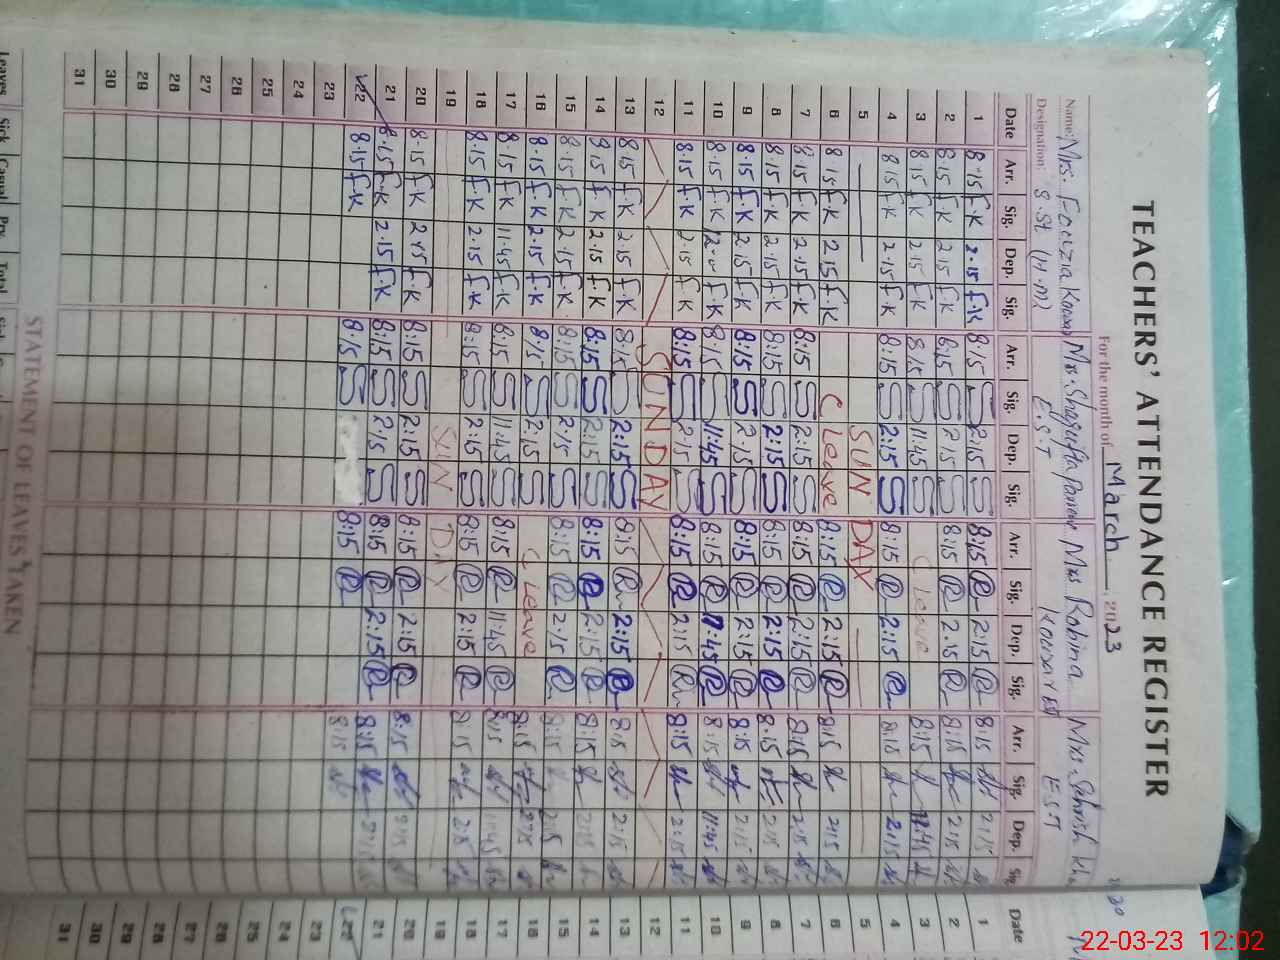 TEACHERS' ATTENDANCE REGISTER
For the month of March, 2023
Name: Mrs. Fouzia Kousar Mrs. Shagufta Parveen Mrs Robima Kousar EST Mrs. Sehrish Kha
Designation: S.St (H.M) E.S.T E.S.T
Date Arr. Sig. Dep. Sig. Arr. Sig. Dep. Sig. Arr. Sig. Dep. Sig. Arr. Sig. Dep. Sig Date
1 8.15 F.K 2.15 F.K 8:15 S 2:15 S 8:15 R 2:15 R 8:15 2:15 1
2 8.15 F.K 2.15 F.K 8:15 S 2:15 S 8:15 R 2:15 R 8:15 2:15 2
3 8.15 F.K 2.15 F.K 8:15 S 11:45 S C Leave 8:15 11:45 3
4 8.15 F.K 2.15 F.K 8:15 S 2:15 S 8:15 R 2:15 R 8:15 2:15 4
5 SUN DAY 5
6 8.15 F.K 2.15 F.K C Leave 8:15 R 2:15 R 8:15 2:15 6
7 8.15 F.K 2.15 F.K 8:15 S 2:15 S 8:15 R 2:15 R 8:15 2:15 7
8 8.15 F.K 2.15 F.K 8:15 S 2:15 S 8:15 R 2:15 R 8.15 2:15 8
9 8.15 F.K 2.15 F.K 8:15 S 2:15 S 8:15 R 2:15 R 8:15 2:15 9
10 8.15 F.K F.K 8:15 S 11:45 S 8:15 R 11:45 R 8:15 11:45 10
11 8.15 F.K 2.15 F.K 8:15 S 2:15 S 8:15 R 2:15 R 8:15 2:15 11
12 SUNDAY 12
13 8.15 F.K 2.15 F.K 8:15 S 2:15 S 8:15 R 2:15 R 8:15 2:15 13
14 8.15 F.K 2.15 F.K 8:15 S 2:15 S 8:15 R 2:15 R 8:15 2:15 14
15 8.15 F.K 2.15 F.K 8:15 S 2:15 S 8:15 R 2:15 R 8:15 2:15 15
16 8.15 F.K 2.15 F.K 8:15 S 2:15 S C Leave 8:15 2:15 16
17 8.15 F.K 11.45 F.K 8:15 S 11:45 S 8:15 R 11:45 R 8:15 11:45 17
18 8.15 F.K 2.15 F.K 8:15 S 2:15 S 8:15 R 2:15 R 8:15 2:15 18
19 SUN DAY 19
20 8.15 F.K 2.15 F.K 8:15 S 2:15 S 8:15 R 2:15 R 8:15 2:15 20
21 8.15 F.K 2.15 F.K 8:15 S 2:15 S 8:15 R 2:15 R 8:15 2:15 21
22 8.15 F.K 8:15 S 8:15 R 8:15 22
23 23
24 24
25 25
26 26
27 27
28 28
29 29
30 30
31 31
STATEMENT OF LEAVES TAKEN
Leaves Sick Casual Prv. Total
22-03-23 12:02